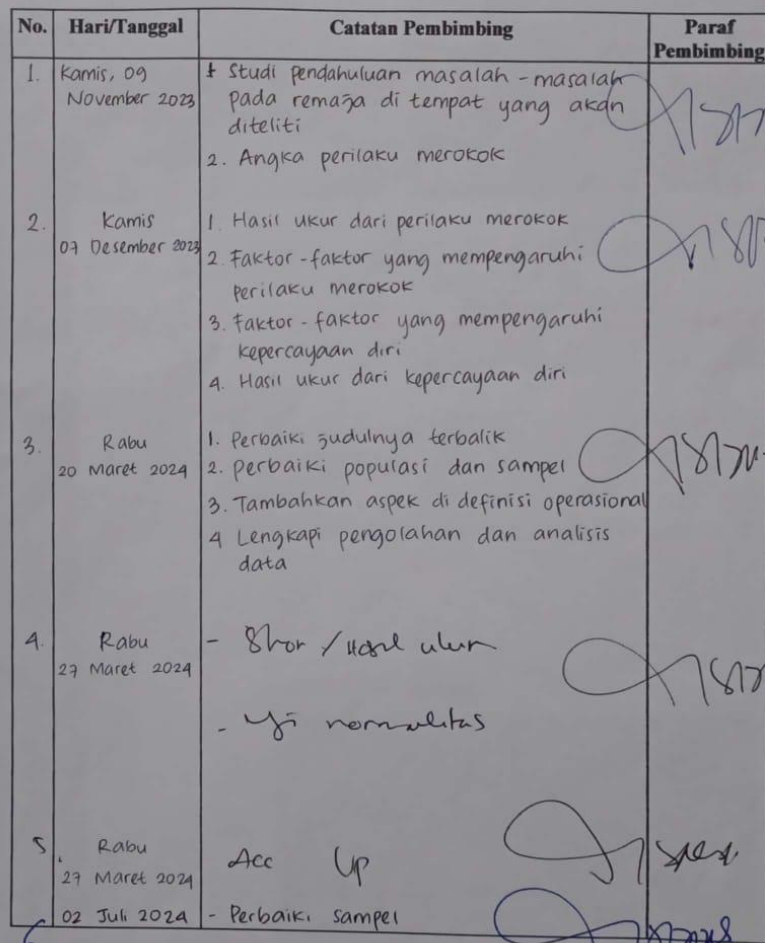 No. Hari/Tanggal Catatan Pembimbing Paraf
Pembimbing
1. Kamis, 09 1 Studi pendahuluan masalah - masalah
November 2023 pada remaja di tempat yang akan
diteliti
2. Angka perilaku merokok
2. Kamis 1. Hasil ukur dari perilaku merokok
07 Desember 2023 2. Faktor - faktor yang mempengaruhi
perilaku merokok
3. Faktor - faktor yang mempengaruhi
kepercayaan diri
4. Hasil ukur dari kepercayaan diri
3. Rabu 1. Perbaiki judulnya terbalik
20 Maret 2024 2. perbaiki populasi dan sampel
3. Tambahkan aspek di definisi operasional
4 Lengkapi pengolahan dan analisis
data
4. Rabu - Skor / Hasil ukur
27 Maret 2024
- Uji normalitas
5. Rabu Acc Up
27 Maret 2024
02 Juli 2024 - Perbaiki sampel